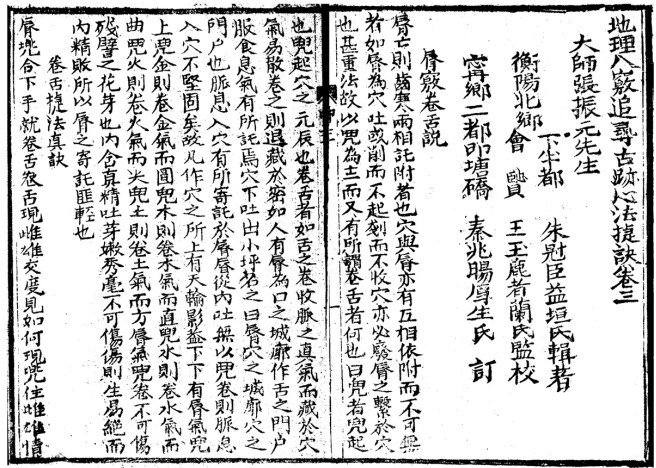 地理八竅追尋古跡心法捷訣卷三
大師張振元先生
下牛都 朱慰臣益垣氏輯者
衡陽北鄉會 王玉鹿者蘭氏監校
甯鄉二都印塘礄 秦兆賜厚生氏 訂
唇竅卷舌說
唇亡則齒寒兩相託附者也穴與唇亦有互相依附而不可無
者如唇為穴吐或削而不起剗而不收穴亦必廢唇之繫於穴
也甚重法故以兜為主而又有所謂卷舌者何也曰兜者兜起
也兜起穴之元辰也卷舌者如舌之卷收脈之真氣而藏於穴
氣易散卷之則退藏於密如人有唇為口之城廓作舌之門户
服食息氣有所託焉穴下吐出小坪茗之曰唇穴之城廓穴之
門户也脈息入穴有所寄託於唇唇從內吐無以兜卷則脈息
入穴不堅固矣故凡作穴之所上有天輪影益下下有唇氣兜
上兜金則卷金氣而圓兜木則卷木氣而直兜水則卷水氣而
曲兜火則卷火氣而尖兜土則卷土氣而方唇氣兜卷不可傷
殘擘之花芽也內含真精吐芽嫩秀毫不可傷傷則生易絕而
內精賑所以唇之寄託匪輕也
卷舌捷法真訣
唇兜合下手就卷舌卷舌現雌雄交度見如何現兜住雌雄情